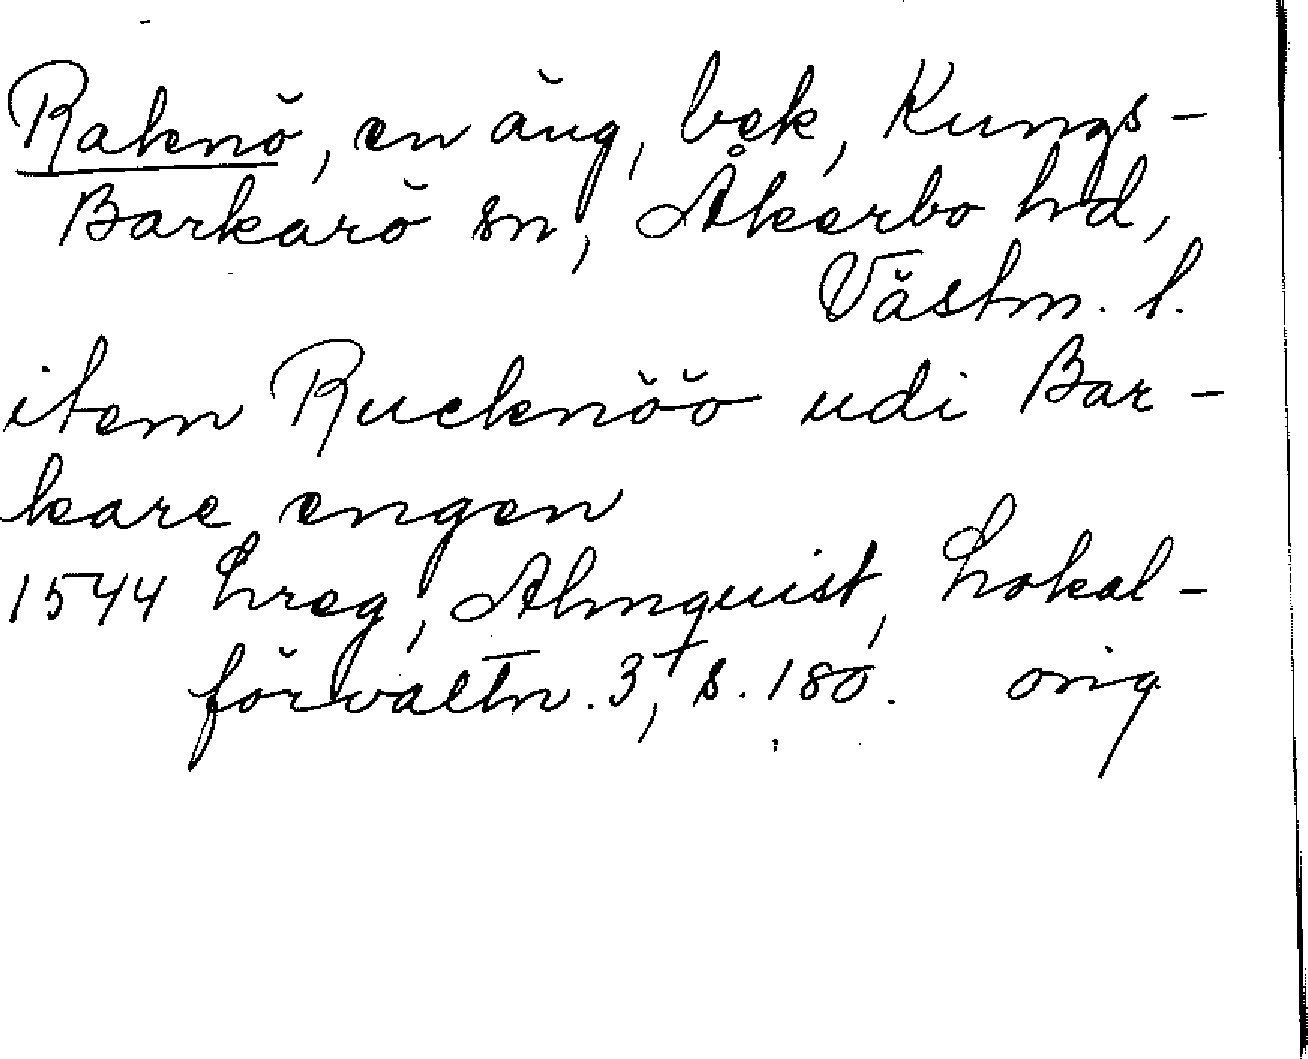 Raknö, en äng, bek, Kungs-
Barkarö sn, Åkerbo hd,
Västm. l.
item Rucknöö udi Bar-
kare engen
1544 Lreg, Almquist, Lokal-
förvaltn. 3, s. 180. orig